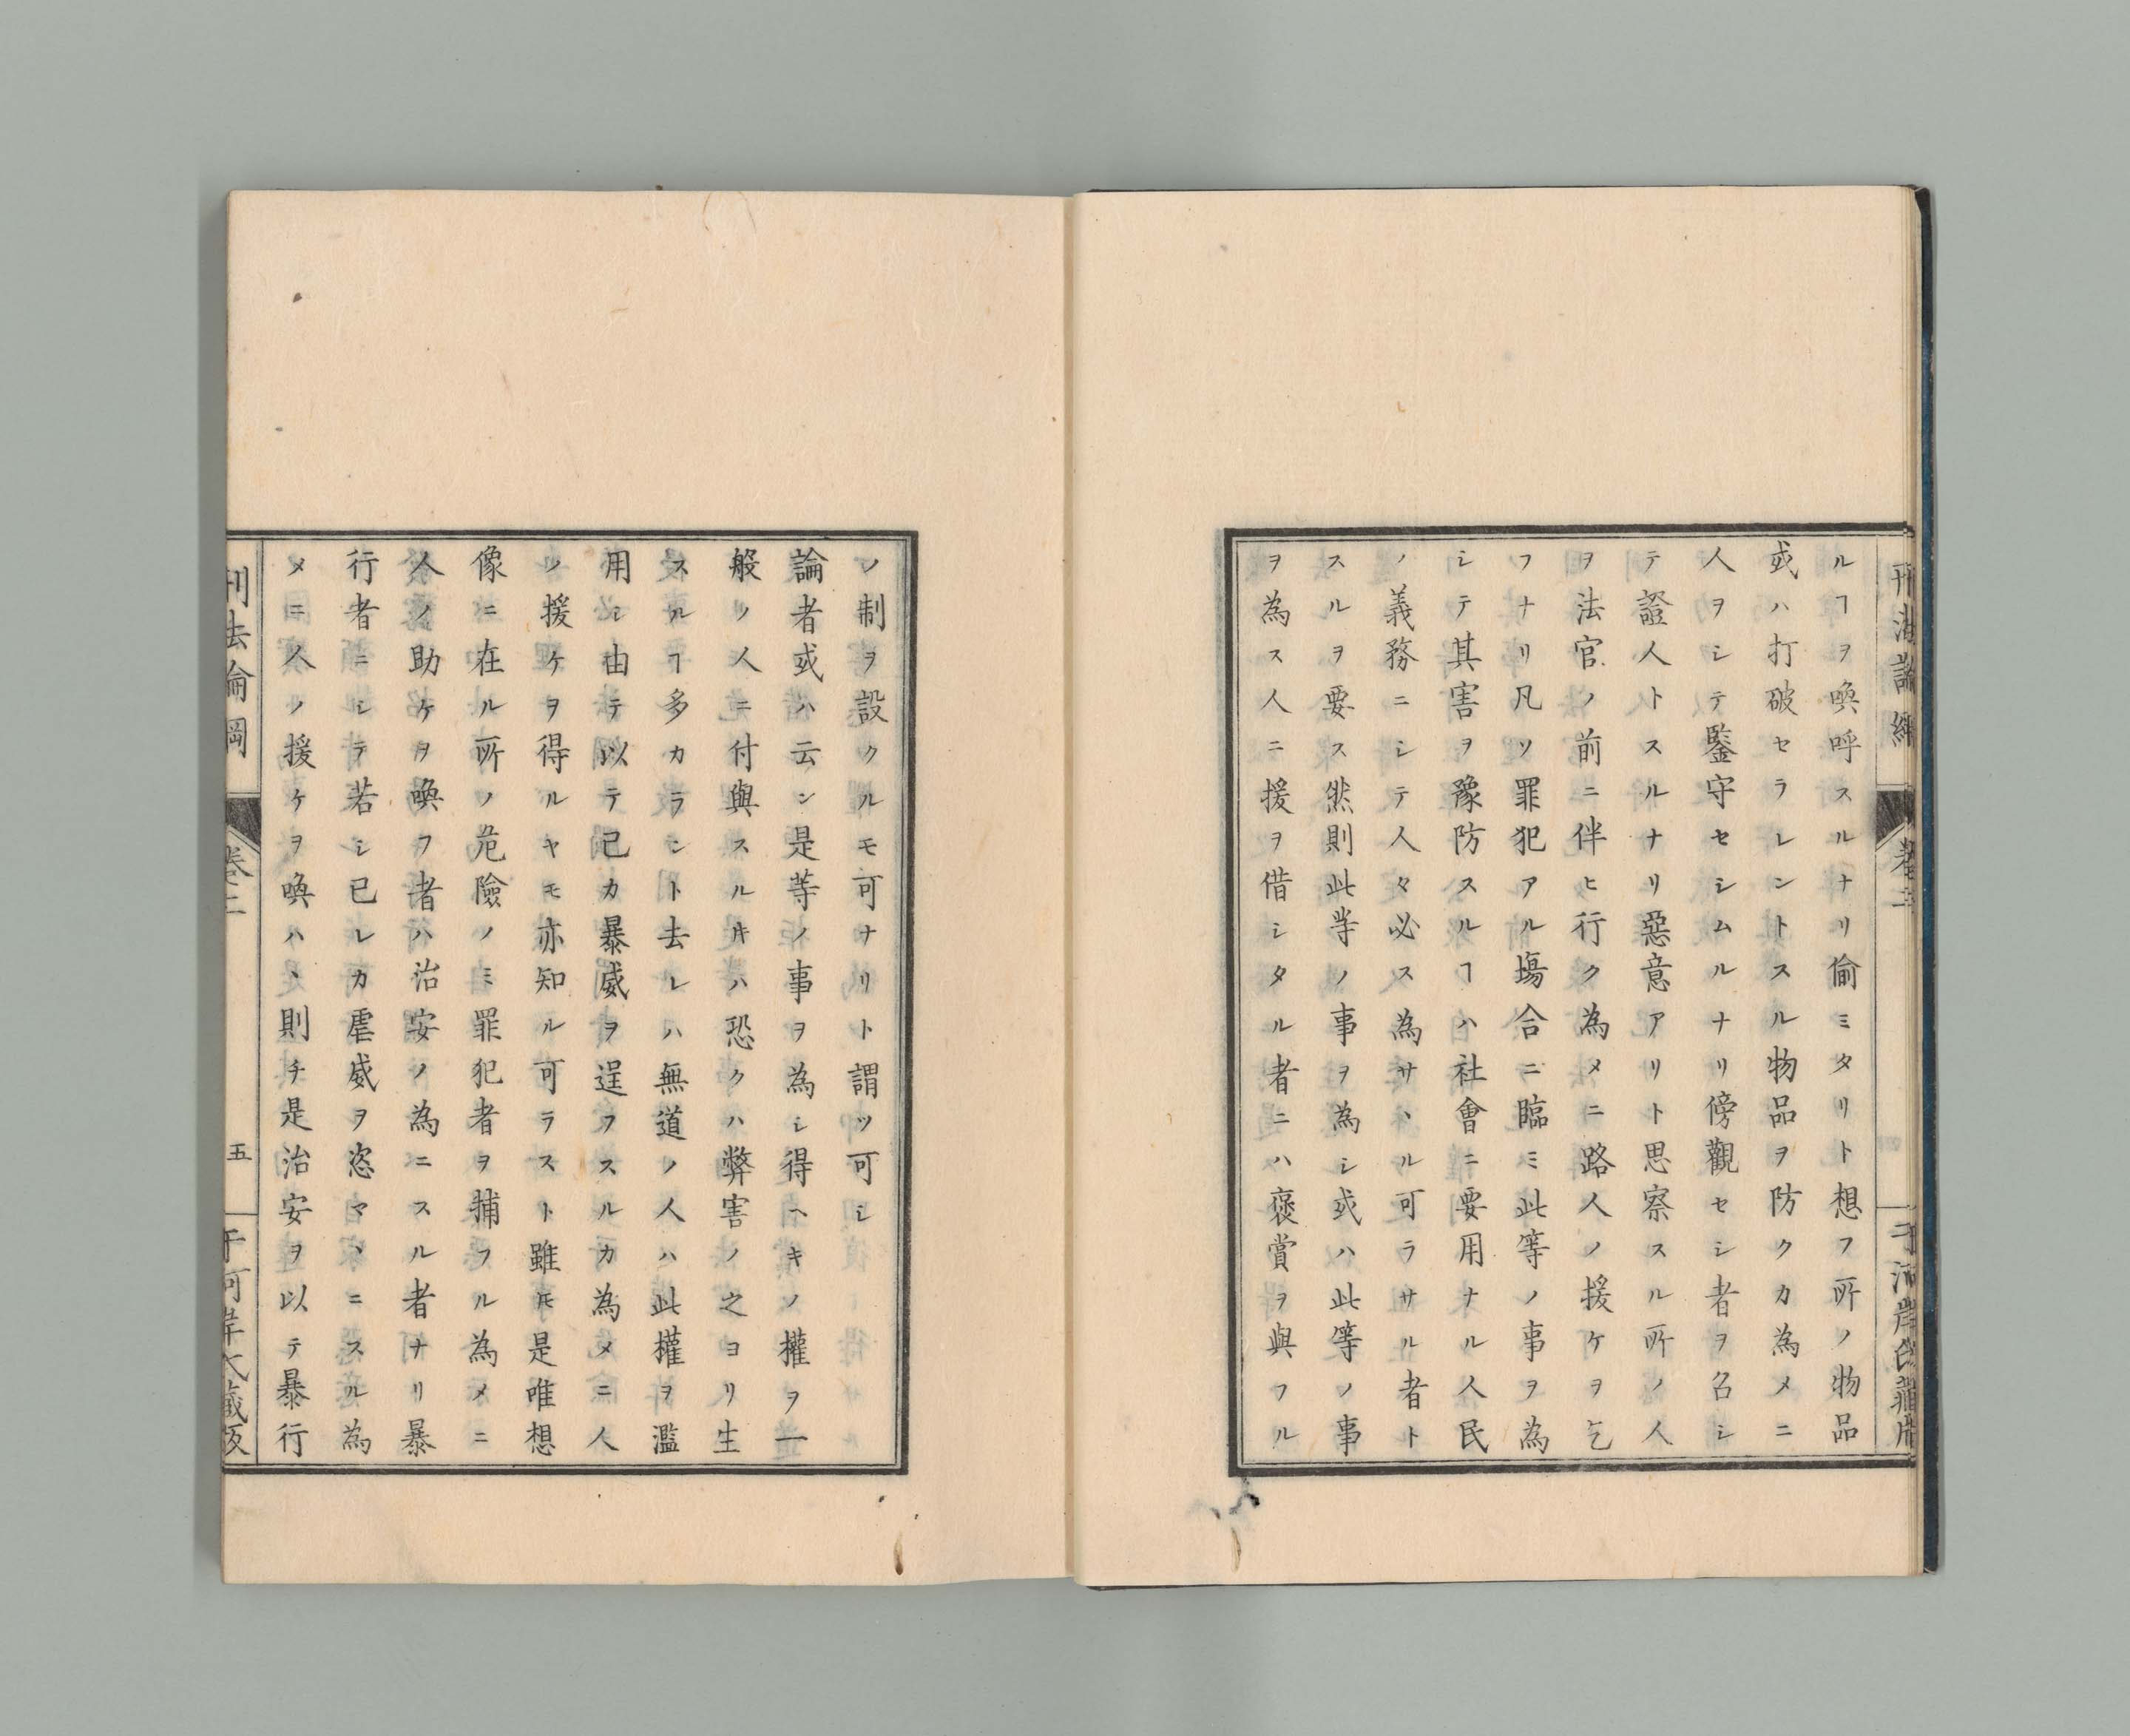 ルヿヲ喚呼スルナリ偷ミタリト想フ所ノ物品
或ハ打破セラレントスル物品ヲ防クカ為メニ
人ヲシテ鑒守セシムルナリ傍觀セシ者ヲ召シ
テ證人トスルナリ惡意アリト思察スル所ノ人
ヲ法官ノ前ニ伴ヒ行ク為メニ路人ノ援ケヲ乞
フナリ凡ソ罪犯アル塲合ニ臨ミ此等ノ事ヲ為
シテ其害ヲ豫防スルヿハ社會ニ要用ナル人民
ノ義務ニシテ人々必ス為サヽル可ラサル者ト
スルヲ要ス然則此等ノ事ヲ為シ或ハ此等ノ事
ヲ為ス人ニ援ヲ借シタル者ニハ褒賞ヲ與フル
ノ制ヲ設クルモ可ナリト謂ツ可シ
論者或ハ云ン是等ノ事ヲ為シ得ヘキノ權ヲ一
般ノ人ニ付與スルキハ恐クハ弊害ノ之ヨリ生
スルヿ多カラント去レハ無道ノ人ハ此權ヲ濫
用シ由テ以テ已カ暴威ヲ逞フスルカ為メニ人
ノ援ケヲ得ルヤモ亦知ル可ラスト雖𪜈是唯想
像ニ在ル所ノ危險ノミ罪犯者ヲ捕フル為メニ
人ノ助ケヲ喚フ者ハ治安ノ為ニスル者ナリ暴
行者ニシテ若シ已レカ虐威ヲ恣マヽニスル為
メニ人ノ援ケヲ喚ハヽ則チ是治安ヲ以テ暴行
刑法論綱
卷二
五